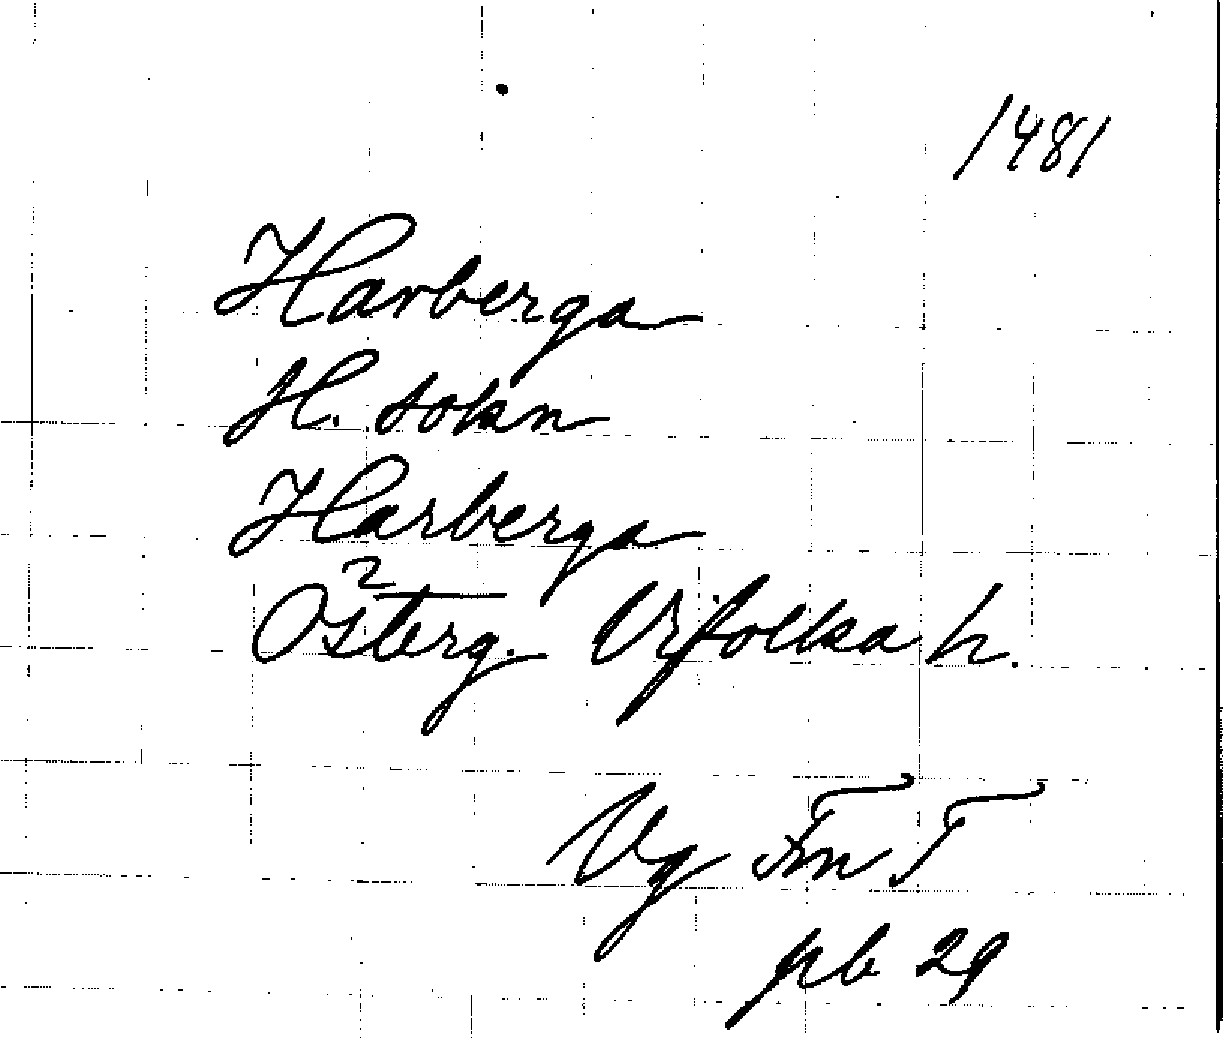 1481
Harberga
H. sokn
Harberga
Österg. Vifolka h.
Vg Fm T
pb 29